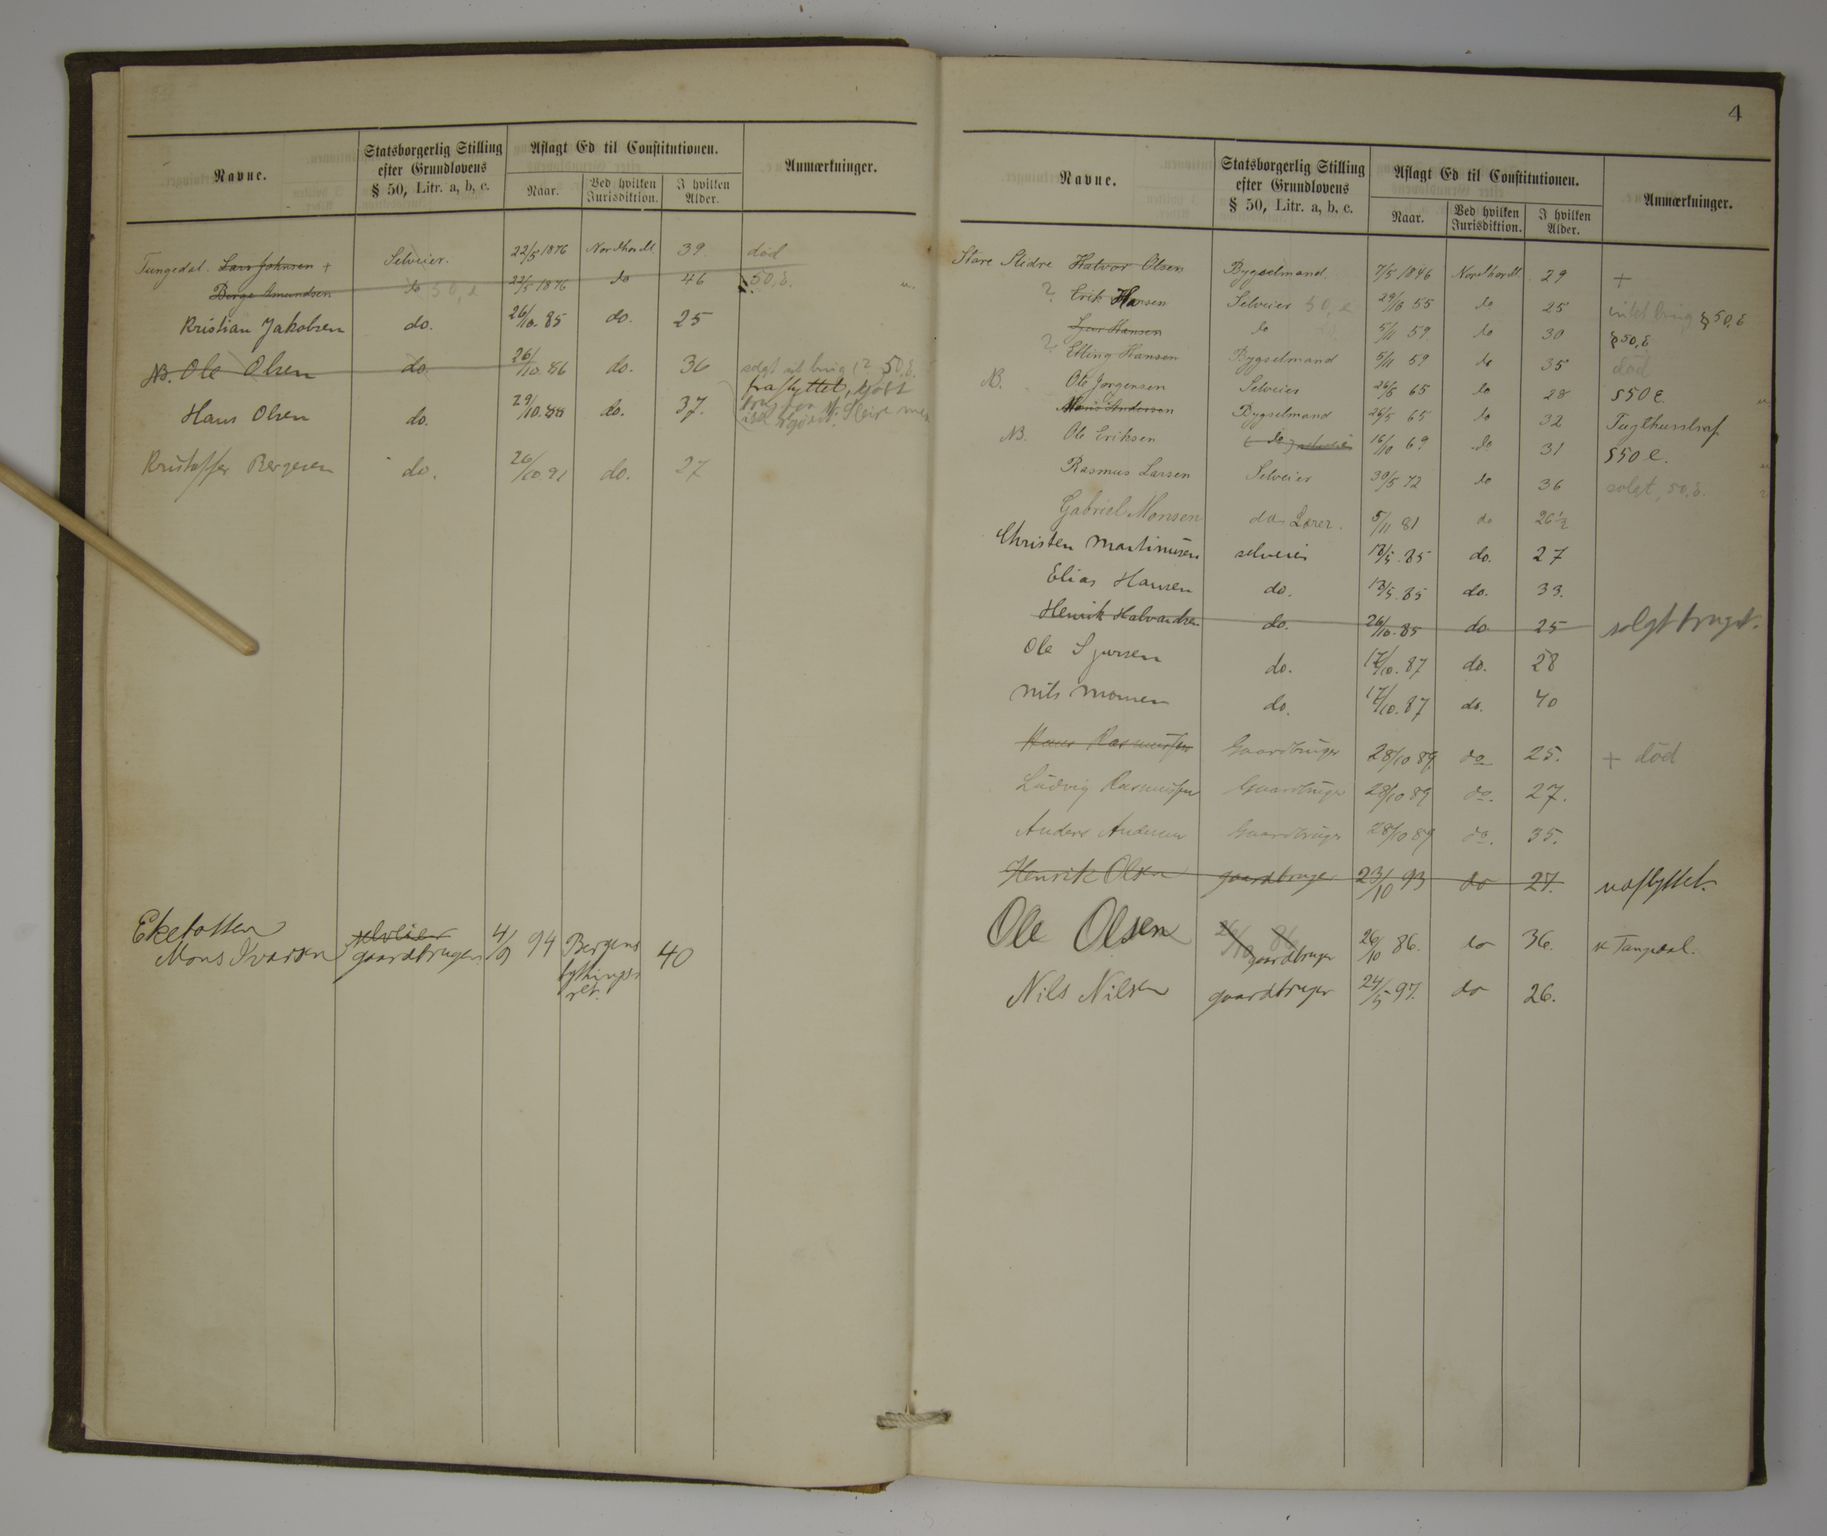 Navne.
Statsborgerlig Stilling efter Grundlovens § 50, Litr. a, b, c.
Aflagt Ed til Constitutionen.
Naar.
Ved hvilken Jurisdiktion.
I hvilken Alder.
Anmærkninger.
Tungedal. Lars Johnsen + Selveier. 22/5 1876 Nordhordl 39. död
Børge Amundsen do 50, 22/5 1876 do 46 50,
Kristian Jakobsen do. 26/10. 85 do. 25
NB. Ole Olsen do. 26/10. 86 do. 36 solgt sit brug
Hans Olsen do. 29/10. 88 do. 37. fraflyttet, kjøbt
Kristoffer Bergesen do. 26/10 91 do. 27
Eketotten
Mons Ivarsen selveier gaardbruger 4/9 94 Bergens bythingsret. 40
4
Navne.
Statsborgerlig Stilling efter Grundlovens § 50, Litr. a, b, c.
Aflagt Ed til Constitutionen.
Naar.
Ved hvilken Jurisdiktion.
I hvilken Alder.
Anmærkninger.
Store Sleidre Halvor Olsen Bygselmand. 7/5 1846 Nordhordl 29 +
? Erik Hansen Selveier 50, 29/5 55 do 25 intet brug § 50,
Hansen do 5/11 59 do 30 § 50,
? Elling Hansen Bygselmand 5/11 59 do 35 död
NB. Ole Jørgensen Selveier 26/5 65 do 28 § 50 c.
Anderson Bygselmand 26/5 65 do 32 Tugthusstraf
NB. Ole Eriksen do selveier 16/10 69 do 31 § 50 c.
Rasmus Larsen Selveier 30/5 72 do 36 solgt, 50,
Gabriel Monsen do Lærer. 5/11 81 do 26 1/2
Christen Martinusen selveier 13/5. 85 do. 27
Elias Hansen do. 13/5. 85 do. 33.
Henrik Halvardsen do. 26/10. 85 do 25 solgt bruget.
Ole Sjursen do. 17/10. 87 do. 28
Nils Monsen do. 17/10. 87 do. 40
Hans Rasmussen Gaardbruger 28/10 89. do 25. + död
Ludvig Rasmussen Gaardbruger 28/10 89 do. 27.
Anders Andersen Gaardbruger 28/10 89 do. 35.
Henrik Olsen gaardbruger 23/10 93 do 27. udflyttet.
Ole Olsen 26/10 86 gaardbruger 26/10 86. do 36. v. Tungedal.
Nils Nilsen gaardbruger 24/5 97. do 26.